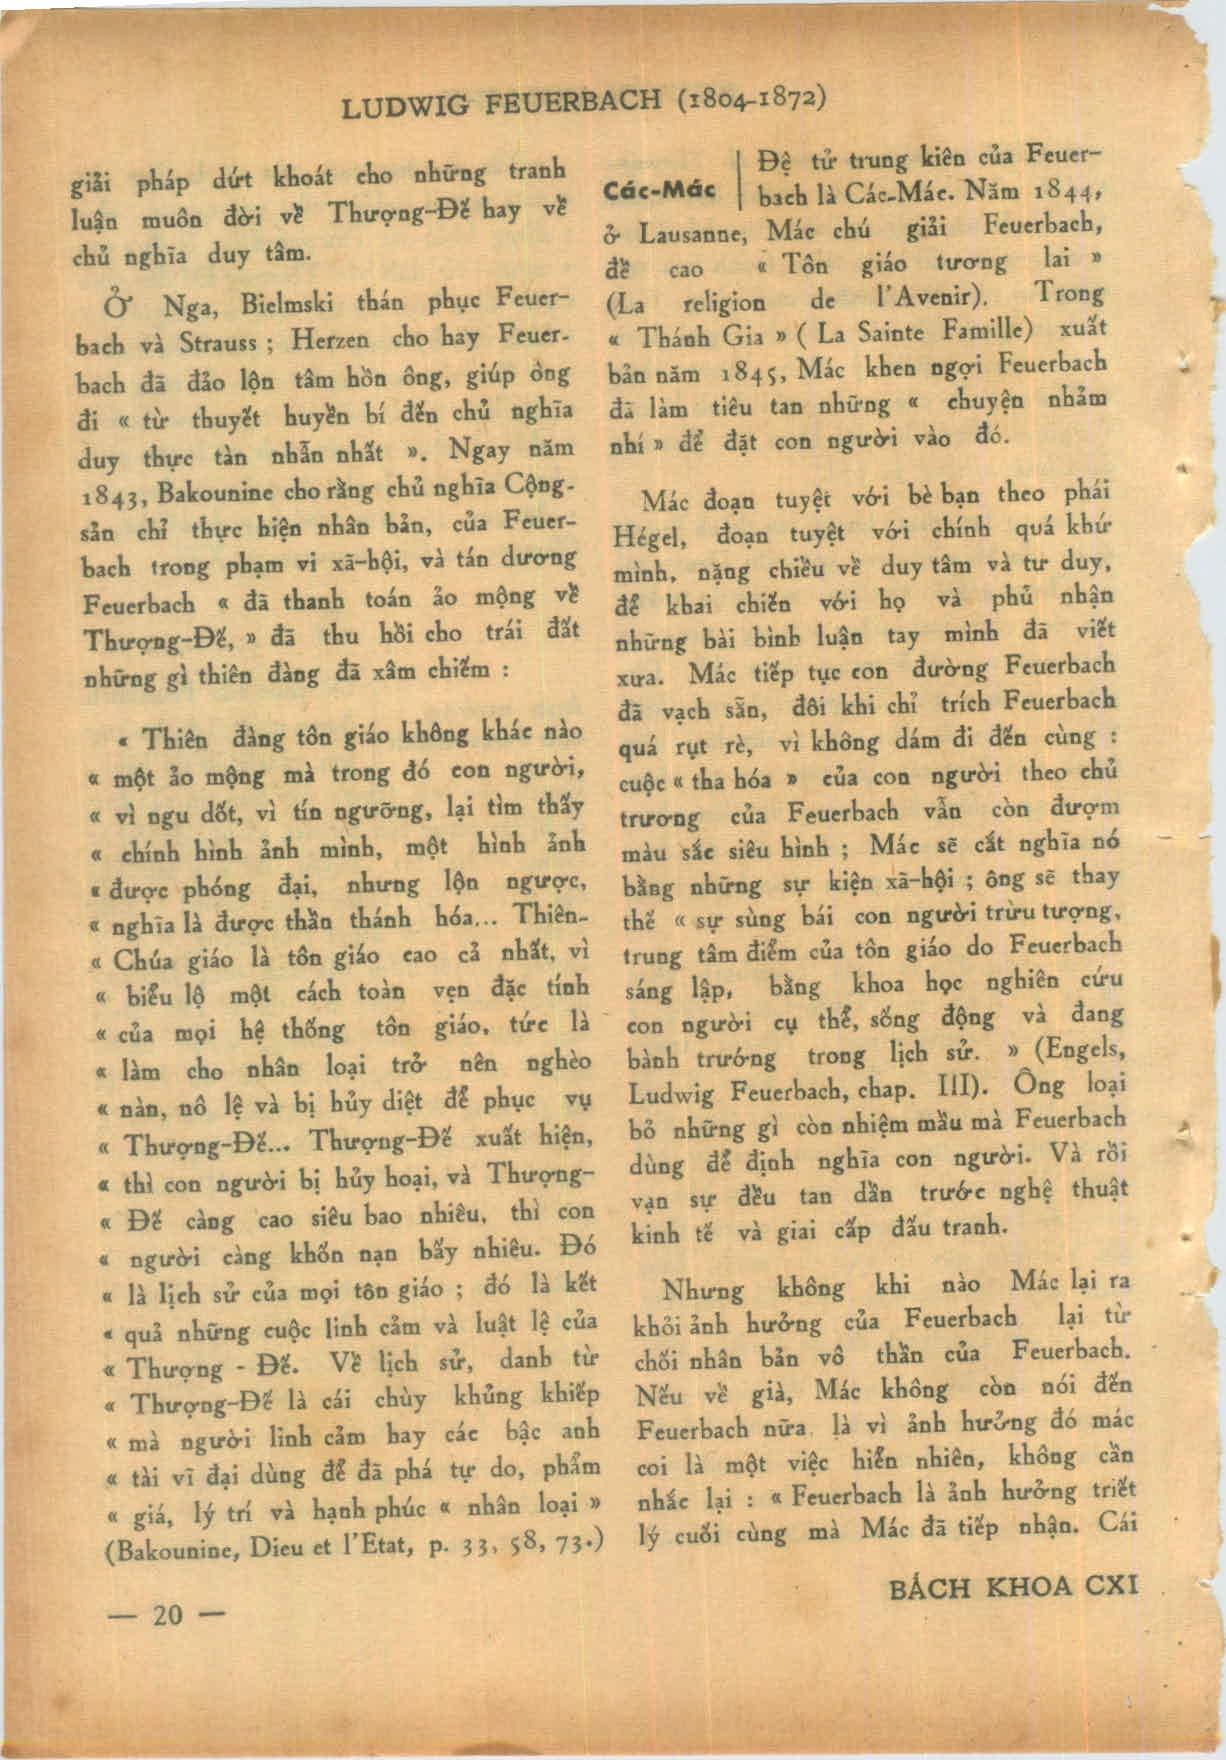 LUDWIG FEUERBACH (1804-1872)
giải pháp dứt khoát cho những tranh
luận muôn đời về Thượng-Đế hay về
chủ nghĩa duy tâm.
Ở Nga, Bielmski thán phục Feuer-
bach và Strauss ; Herzen cho hay Feuer-
bach đã đảo lộn tâm hồn ông, giúp ông
đi « từ thuyết huyền bí đến chủ nghĩa
duy thực tàn nhẫn nhất ». Ngay năm
1843, Bakounine cho rằng chủ nghĩa Cộng-
sản chỉ thực hiện nhân bản, của Feuer-
bach trong phạm vi xã-hội, và tán dương
Feuerbach « đã thanh toán ảo mộng về
Thượng-Đế, » đã thu hồi cho trái đất
những gì thiên đàng đã xâm chiếm :
« Thiên đàng tôn giáo không khác nào
« một ảo mộng mà trong đó con người,
« vì ngu dốt, vì tín ngưỡng, lại tìm thấy
« chính hình ảnh mình, một hình ảnh
« được phóng đại, nhưng lộn ngược,
« nghĩa là được thần thánh hóa... Thiên-
« Chúa giáo là tôn giáo cao cả nhất, vì
« biểu lộ một cách toàn vẹn đặc tính
« của mọi hệ thống tôn giáo, tức là
« làm cho nhân loại trở nên nghèo
« nàn, nô lệ và bị hủy diệt để phục vụ
« Thượng-Đế... Thượng-Đế xuất hiện,
« thì con người bị hủy hoại, và Thượng-
« Đế càng cao siêu bao nhiêu, thì con
« người càng khốn nạn bấy nhiêu. Đó
« là lịch sử của mọi tôn giáo ; đó là kết
« quả những cuộc linh cảm và luật lệ của
« Thượng - Đế. Về lịch sử, danh từ
« Thượng-Đế là cái chùy khủng khiếp
« mà người linh cảm hay các bậc anh
« tài vĩ đại dùng để đã phá tự do, phẩm
« giá, lý trí và hạnh phúc « nhân loại »
(Bakounine, Dieu et l'Etat, p. 33, 58, 73.)
Các-Mác
Đệ tử trung kiên của Feuer-
bach là Các-Mác. Năm 1844,
ở Lausanne, Mác chú giải Feuerbach,
đề cao « Tôn giáo tương lai »
(La religion de l'Avenir). Trong
« Thánh Gia » ( La Sainte Famille) xuất
bản năm 1845, Mác khen ngợi Feuerbach
đã làm tiêu tan những « chuyện nhảm
nhí » để đặt con người vào đó.
Mác đoạn tuyệt với bè bạn theo phái
Hégel, đoạn tuyệt với chính quá khứ
mình, nặng chiều về duy tâm và tư duy,
để khai chiến với họ và phủ nhận
những bài bình luận tay mình đã viết
xưa. Mác tiếp tục con đường Feuerbach
đã vạch sẵn, đôi khi chỉ trích Feuerbach
quá rụt rè, vì không dám đi đến cùng :
cuộc « tha hóa » của con người theo chủ
trương của Feuerbach vẫn còn đượm
màu sắc siêu hình ; Mác sẽ cắt nghĩa nó
bằng những sự kiện xã-hội ; ông sẽ thay
thế « sự sùng bái con người trừu tượng,
trung tâm điểm của tôn giáo do Feuerbach
sáng lập, bằng khoa học nghiên cứu
con người cụ thể, sống động và đang
bành trướng trong lịch sử. » (Engels,
Ludwig Feuerbach, chap. III). Ông loại
bỏ những gì còn nhiệm mầu mà Feuerbach
dùng để định nghĩa con người. Và rồi
vạn sự đều tan dần trước nghệ thuật
kinh tế và giai cấp đấu tranh.
Nhưng không khi nào Mác lại ra
khỏi ảnh hưởng của Feuerbach lại từ
chối nhân bản vô thần của Feuerbach.
Nếu về già, Mác không còn nói đến
Feuerbach nữa, là vì ảnh hưởng đó mác
coi là một việc hiển nhiên, không cần
nhắc lại : « Feuerbach là ảnh hưởng triết
lý cuối cùng mà Mác đã tiếp nhận. Cái
BÁCH KHOA CXI
— 20 —